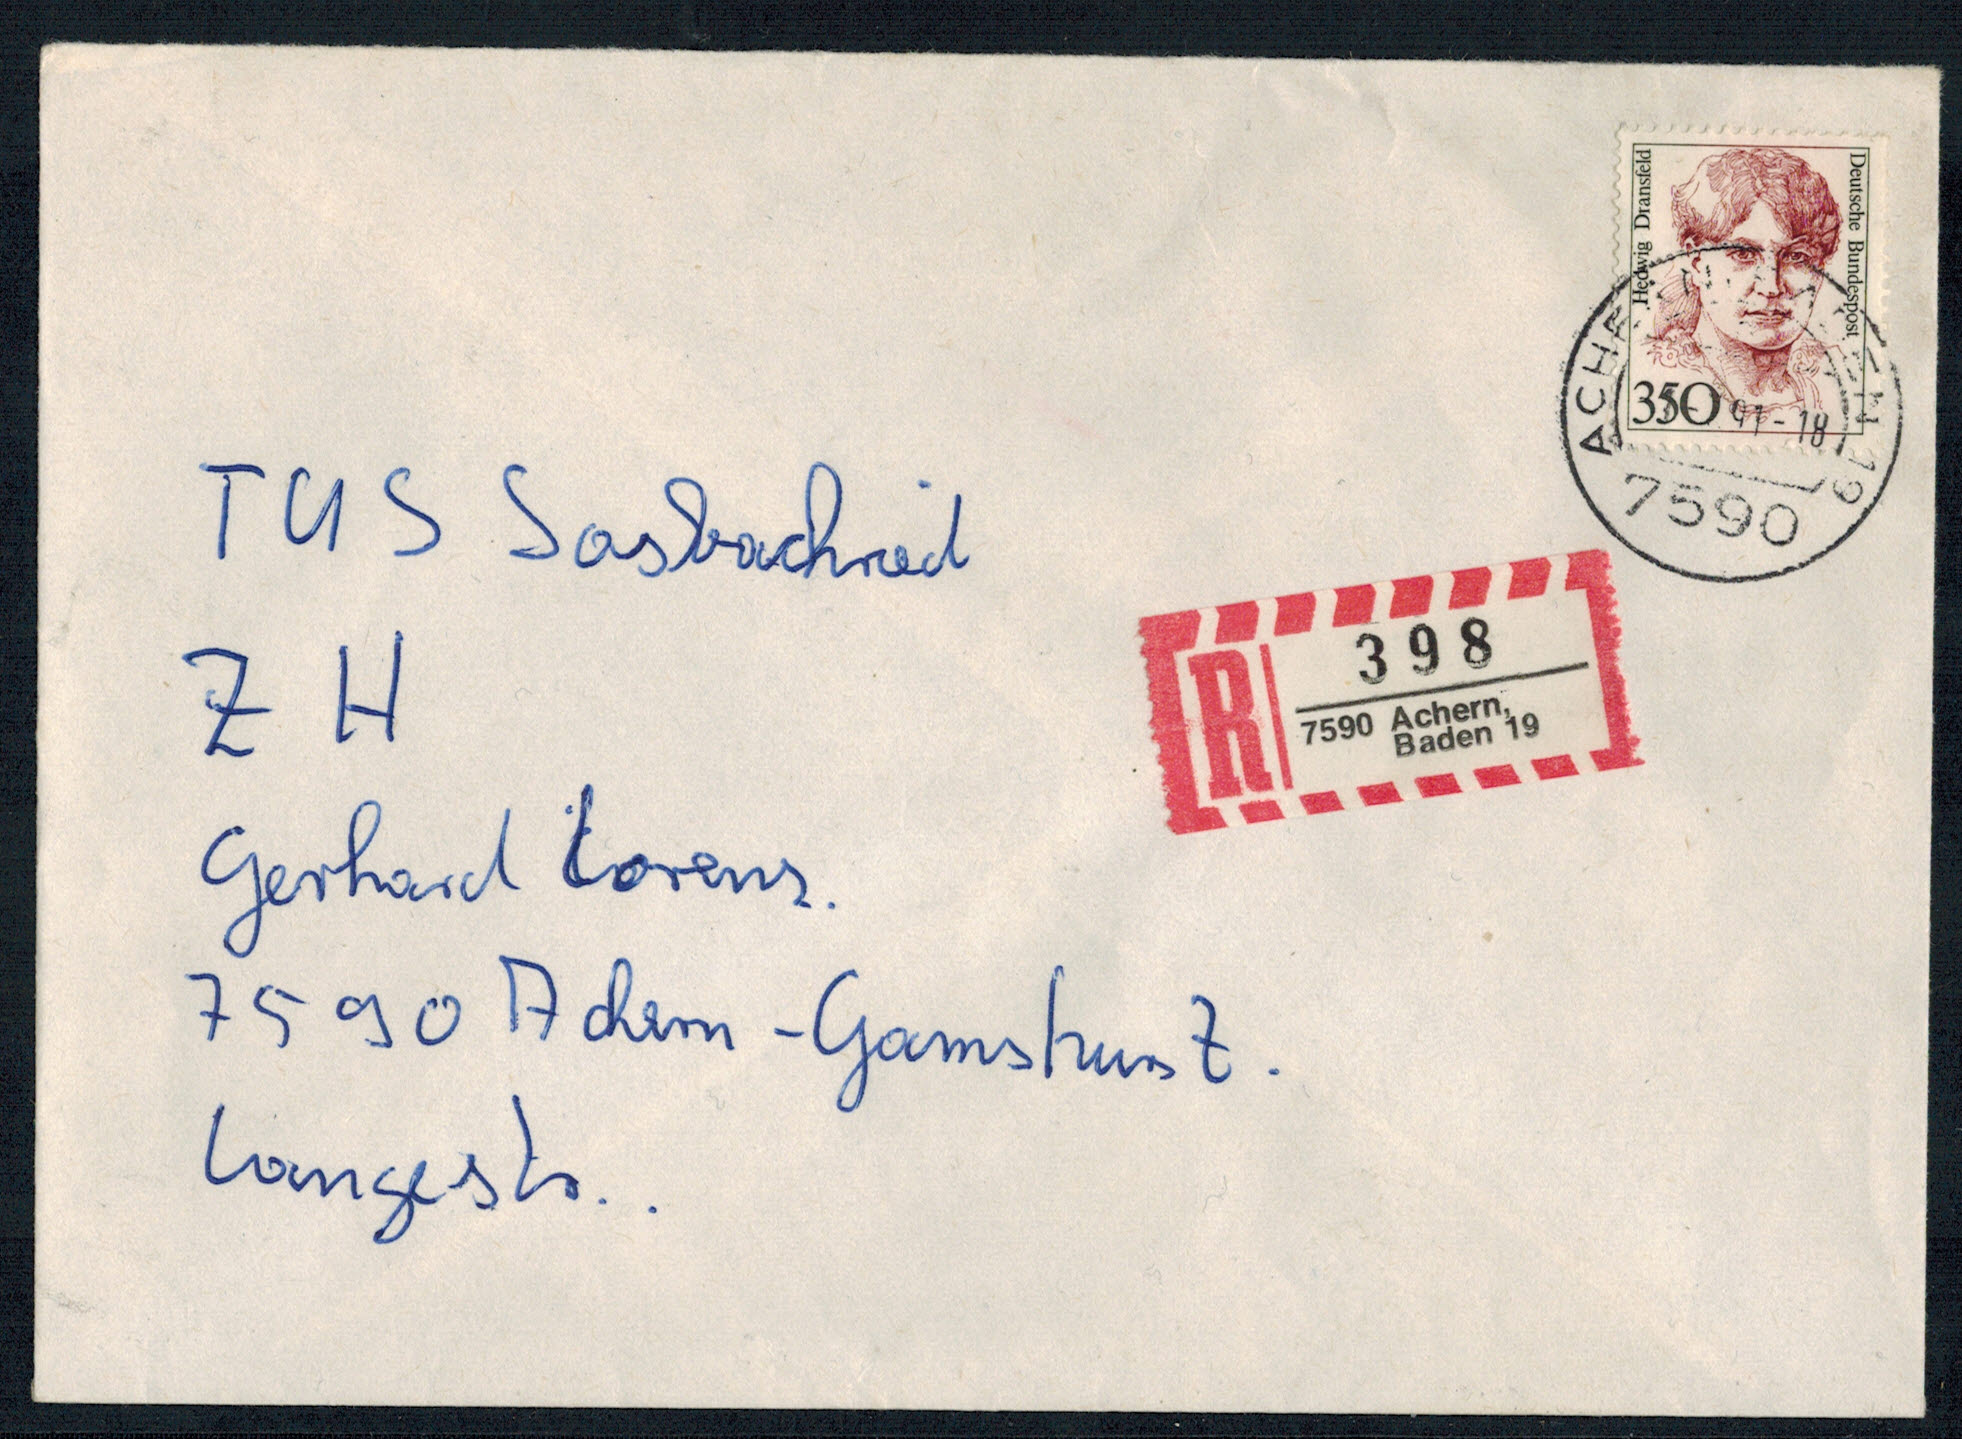 Hedwig Dransfeld
Deutsche Bundespost
350
91-18
19
7590
TUS Sasbachried
R
398
7590 Achern,
Baden 19
Z H
Gerhard Lorenz.
7590 Achern-Gamshurst.
Langestr..